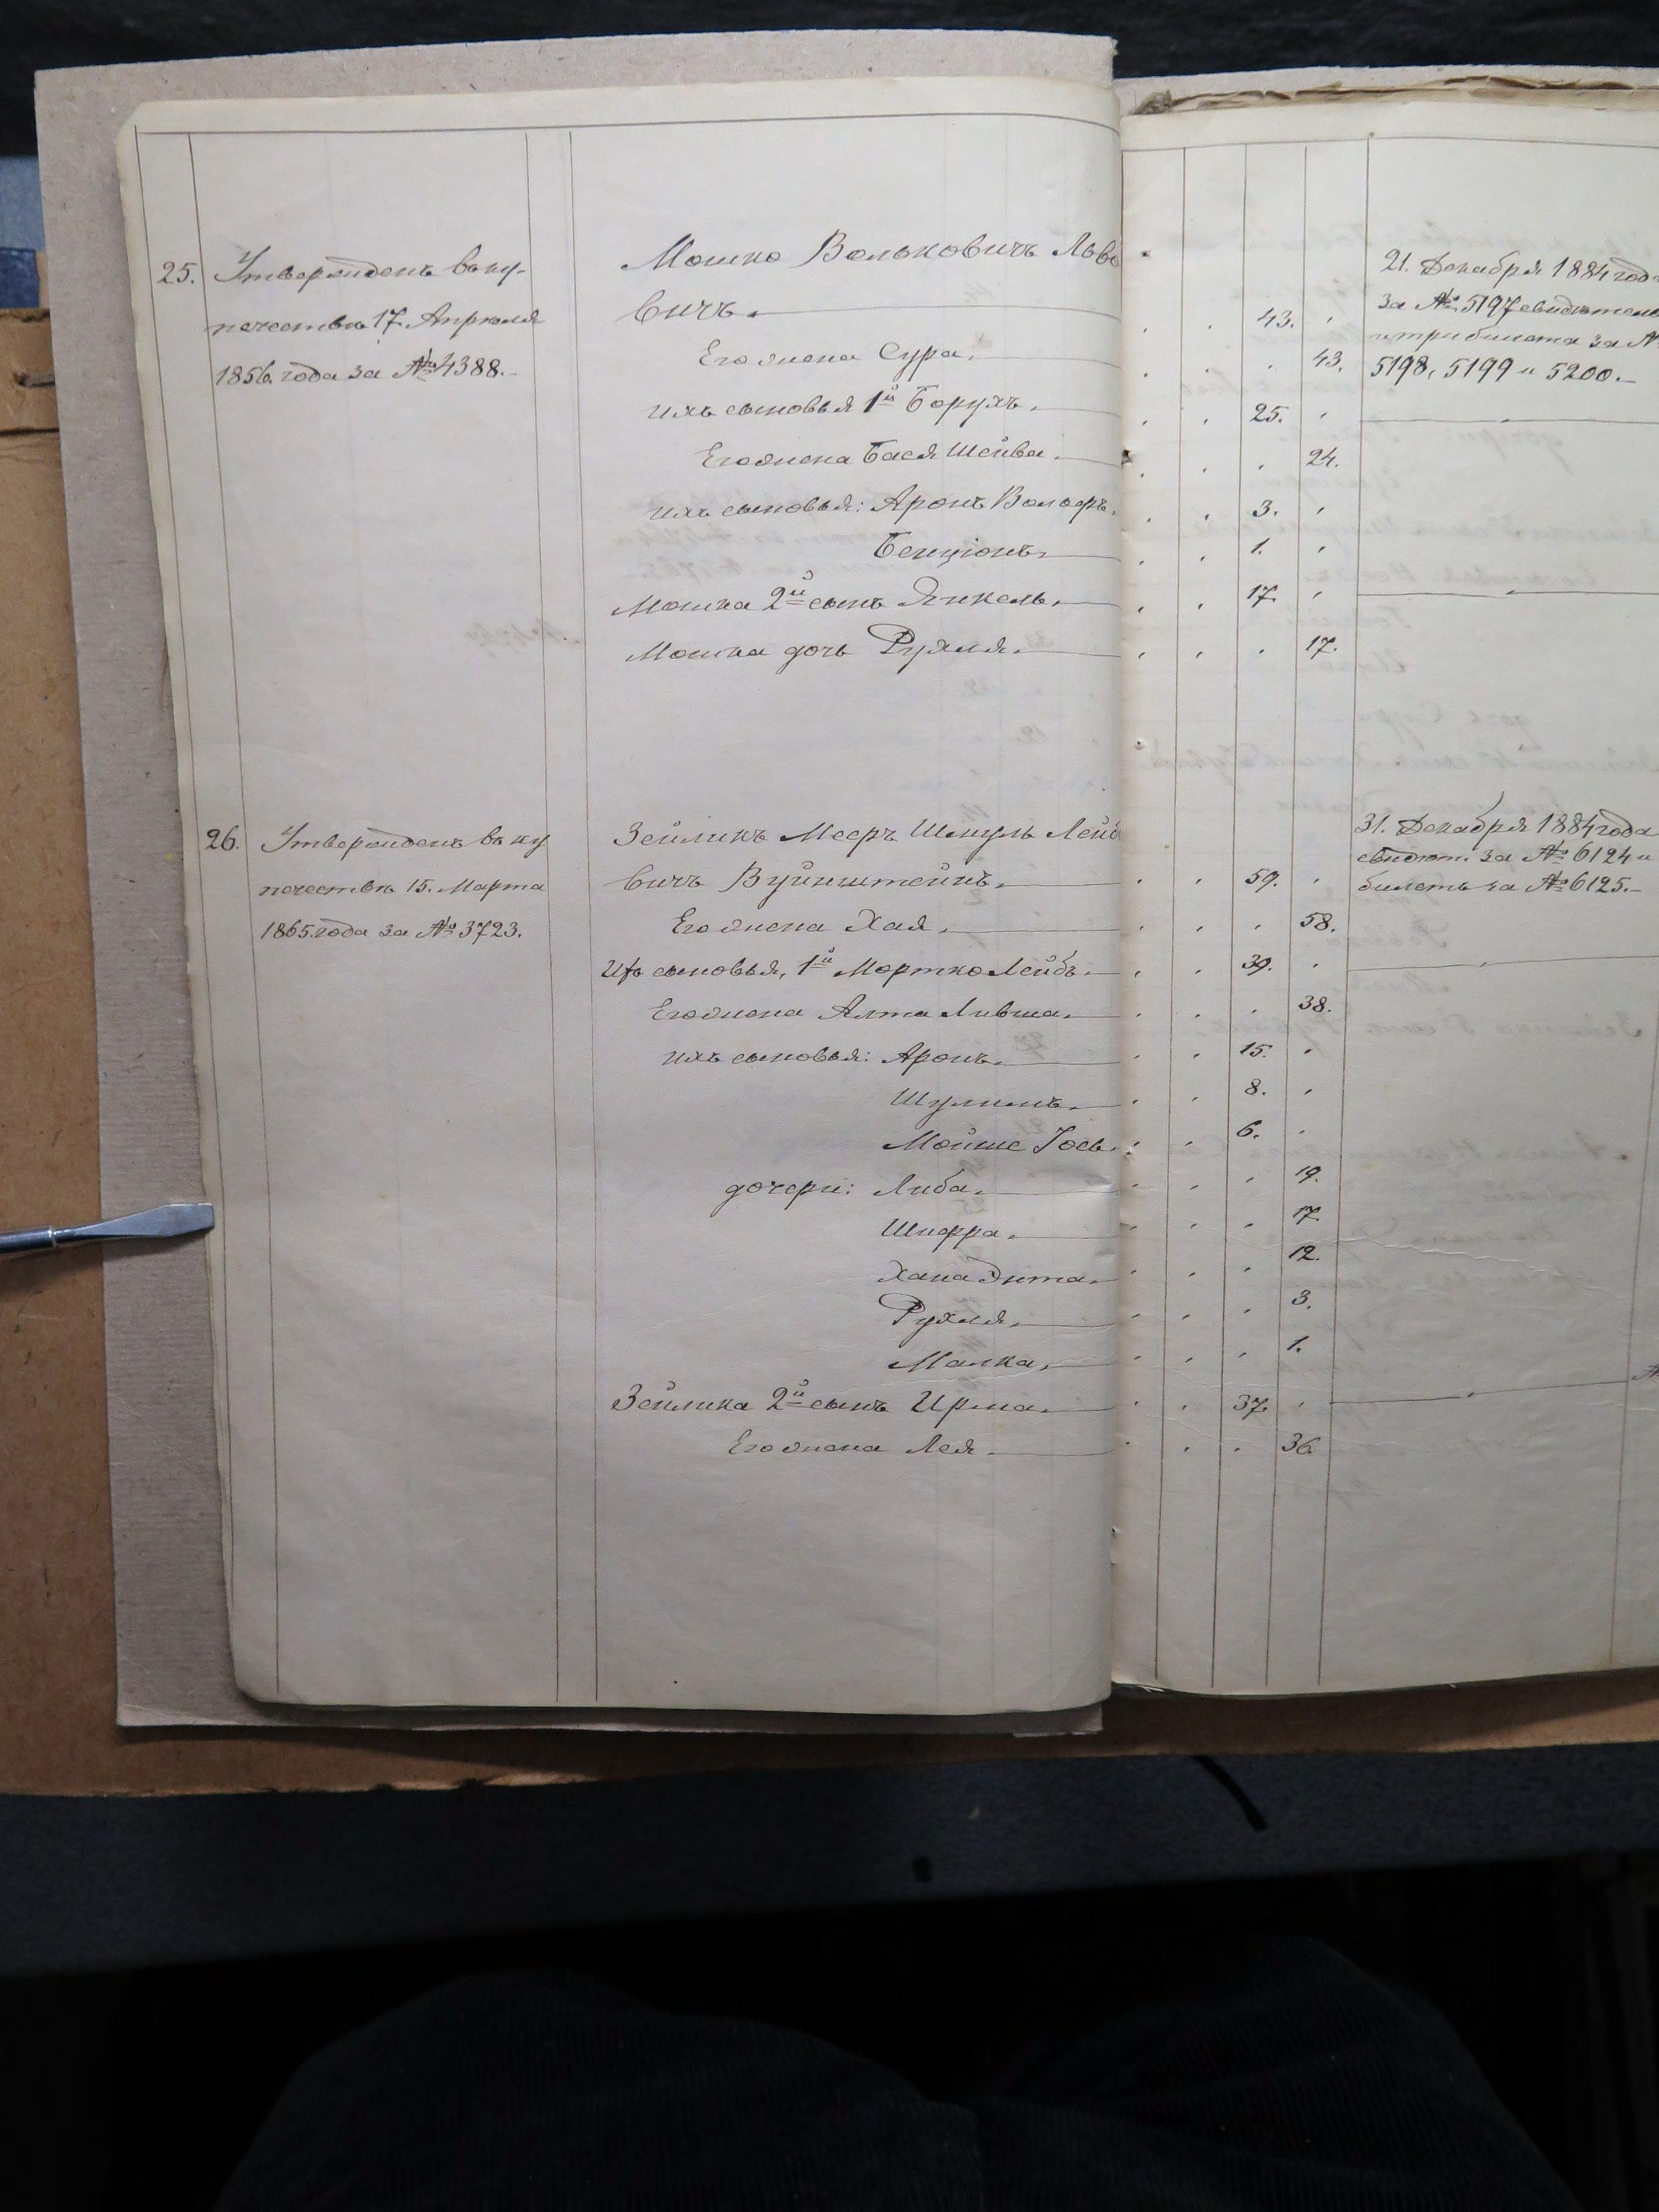 25. Утвержденъ въ ку-
печествѣ 17. Апрѣля
1856. года за № 4388.-
Мошко Вольковичъ Льво
вичъ.
Его жена Сура.
ихъ сыновья 1й Борухъ.
Его жена Бася Шейва.
ихъ сыновья: Аронъ Вольфъ.
Бенціонъ.
Мошка 2й сынъ Янкель.
Мошка дочь Рухля.
43.
43.
25.
24.
3.
1.
17.
17.
21. Декабря 1884 год
за № 5197 свидѣтел
и три билета за №
5198, 5199 и 5200.-
26. Утвержденъ въ ку
печествѣ 15. Марта
1865. года за № 3723.
Зейликъ Мееръ Шмуль Лейб
вичъ Вуйнштейнъ.
Его жена Хая.
Ихъ сыновья, 1й Мортко Лейбъ.
Его жена Алта Ливша.
ихъ сыновья: Аронъ.
Шулимъ.
Мойше Іось.
дочери: Либа.
Шифра.
Хана Дита.
Рухля.
Малка.
Зейлика 2й сынъ Ирма.
Его жена Лея.
59.
58.
39.
38.
15.
8.
6.
19.
17.
12.
3.
1.
37.
36.
31. Декабря 1884 года
свидѣт. за № 6124 и
билетъ за № 6125.-